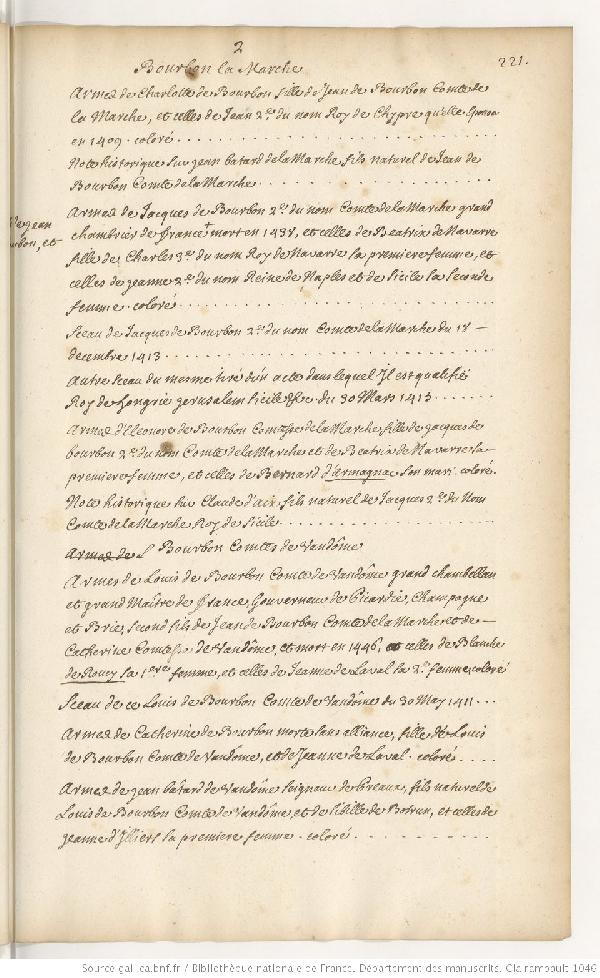 2
221.
Bourbon la Marche
Armes de Charlotte de Bourbon fille de Jean de Bourbon Comte de
la Marche, et celles de Jean 2.e du nom Roy de Chypre qu'elle Epousa
en 1409. coloré
Note historique sur jean batard de la Marche fils naturel de Jean de
Bourbon Comte de la Marche
Armes de Jacques de Bourbon 2.e du nom Comte de la Marche grand
chambrier de france + mort en 1438, et celles de Beatrix de Navarre
fille de Charles 3.e du nom Roy de Navarre sa premiere femme, et
celles de jeanne 2.e du nom Reine de Naples et de Sicile sa seconde
femme. coloré
Sceau de Jacques de Bourbon 2.e du nom Comte de la Marche du 18
decembre 1413
Autre sceau du mesme tiré d'un acte dans lequel Il est qualifié
Roy de hongrie jerusalem sicile &c du 30 Mars 1415
Armes d'Eleonore de Bourbon Comtesse de la Marche, fille de jacques de
bourbon 2.e du nom Comte de la Marche et de Beatrix de Navarre sa
premiere femme, et celles de Bernard d'armagnac son mari. coloré
Note historique sur Claude d'aix, fils naturel de Jacques 2.e du Nom
Comte de la Marche Roy de Sicile
Armes de L Bourbon Comtes de Vandôme
Armes de Louis de Bourbon Comte de Vandôme grand chambellan
et grand Maître de france, Gouverneur de Picardie, Champagne
et Brie, second fils de Jean de Bourbon Comte de la Marche et de
Catherine Comtesse de Vandôme, et mort en 1446, et celles de Blanche
de Roucy sa 1ere femme, et celles de Jeanne de Laval sa 2.e femme, coloré
Sceau de ce Louis de Bourbon Comte de Vandôme du 30 May 1411
Armes de Catherine de Bourbon morte sans alliance, fille de Louis
de Bourbon Comte de Vandome, et de Jeanne de Laval. coloré
Armes de jean bâtard de Vandôme seigneur de Preaux, fils naturel de
Louis de Bourbon Comte de Vandôme, et de sibille de Bostun, et celles de
jeanne d'Illiers sa premiere femme. coloré
jean
bon, et
Source gallica.bnf.fr / Bibliothèque nationale de France. Département des manuscrits. Clairambault 1046